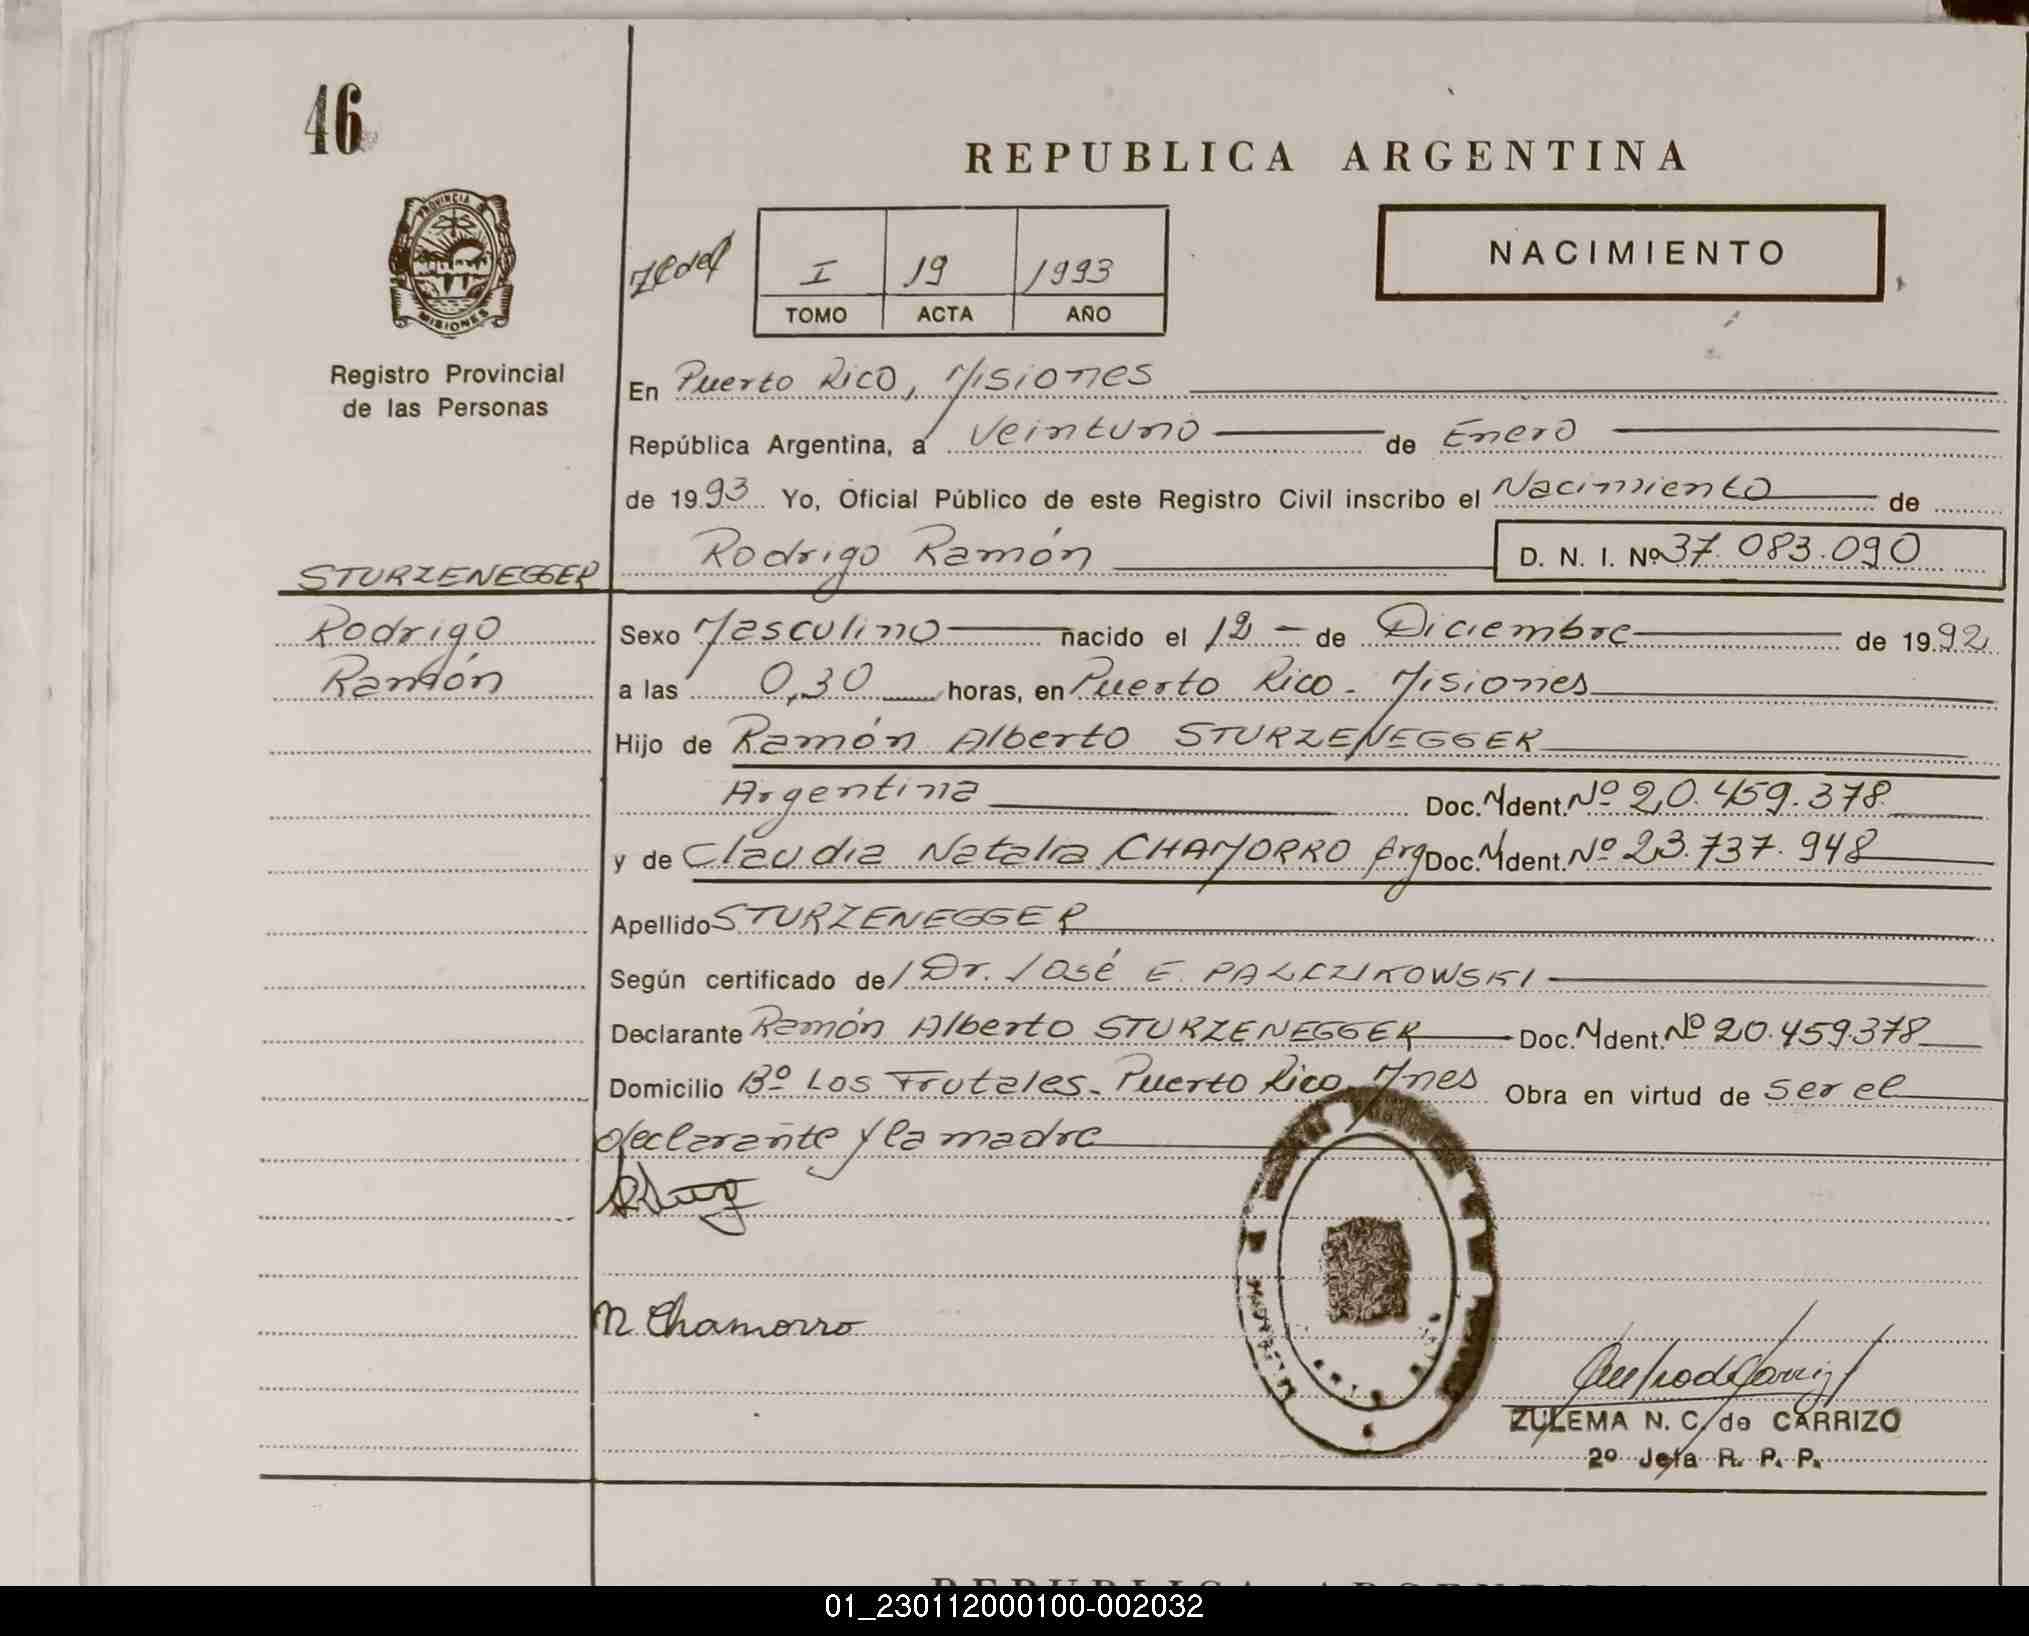 46
REPUBLICA ARGENTINA
PROVINCIA D
MISIONES
NACIMIENTO
I 19 1993
TOMO ACTA AÑO
Registro Provincial
de las Personas
En Puerto Rico, Misiones
República Argentina, a Veintuno de Enero
de 1993 Yo, Oficial Público de este Registro Civil inscribo el Nacimiento de
Rodrigo Ramón D. N. I. Nº 37.083.090
STURZENEGGER
Rodrigo
Ramón
Sexo Masculino nacido el 12 - de Diciembre de 1992
a las 0,30 horas, en Puerto Rico - Misiones
Hijo de Ramón Alberto STURZENEGGER
Argentina Doc. Ident. Nº 20.459.378
y de Claudia Natalia CHAMORRO Arg Doc. Ident. Nº 23.737.948
Apellido STURZENEGGER
Según certificado de/ Dr. José E. PALCZIKOWSKI
Declarante Ramón Alberto STURZENEGGER Doc. Ident. Nº 20.459.378
Domicilio Bº Los Frutales - Puerto Rico, Mnes Obra en virtud de ser el
declarante y la madre
N Chamorro
ZULEMA N. C. de CARRIZO
2º Jefa R. P. P.
REPUBLICA ARGENTINA
01_230112000100-002032